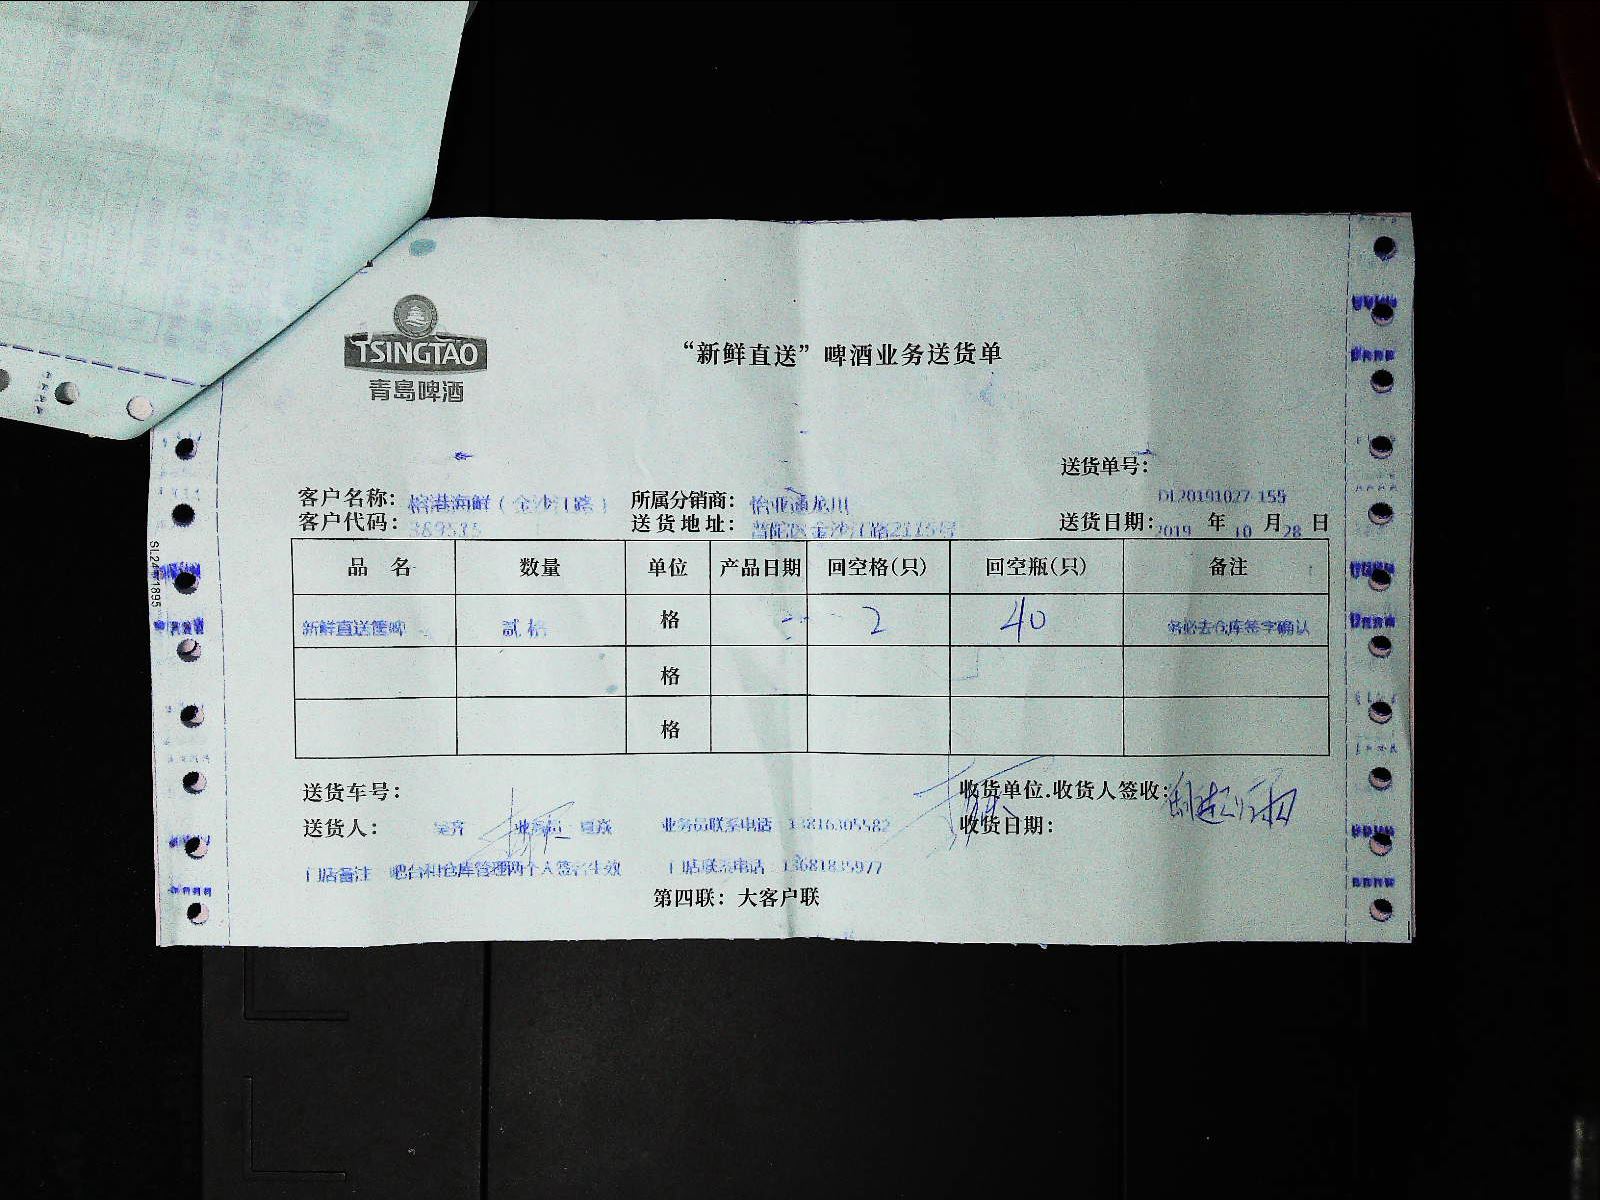 TSINGTAO
青島啤酒
“新鲜直送”啤酒业务送货单
送货单号：
DL20191027-155
客户名称： 榕港海鲜（金沙江路） 所属分销商： 怡亚通龙川
客户代码： 369535 送货地址： 普陀区金沙江路2115号 送货日期： 2019 年 10 月 28 日
品 名 数量 单位 产品日期 回空格(只) 回空瓶(只) 备注
新鲜直送篓啤 贰格 格 2 40 务必去仓库签字确认
格
格
送货车号： 收货单位.收货人签收：
送货人： 吴齐 业务员 夏焱 业务员联系电话 13816305582 收货日期：
门店备注 吧台和仓库管理两个人签名生效 门店联系电话 13681835977
第四联：大客户联